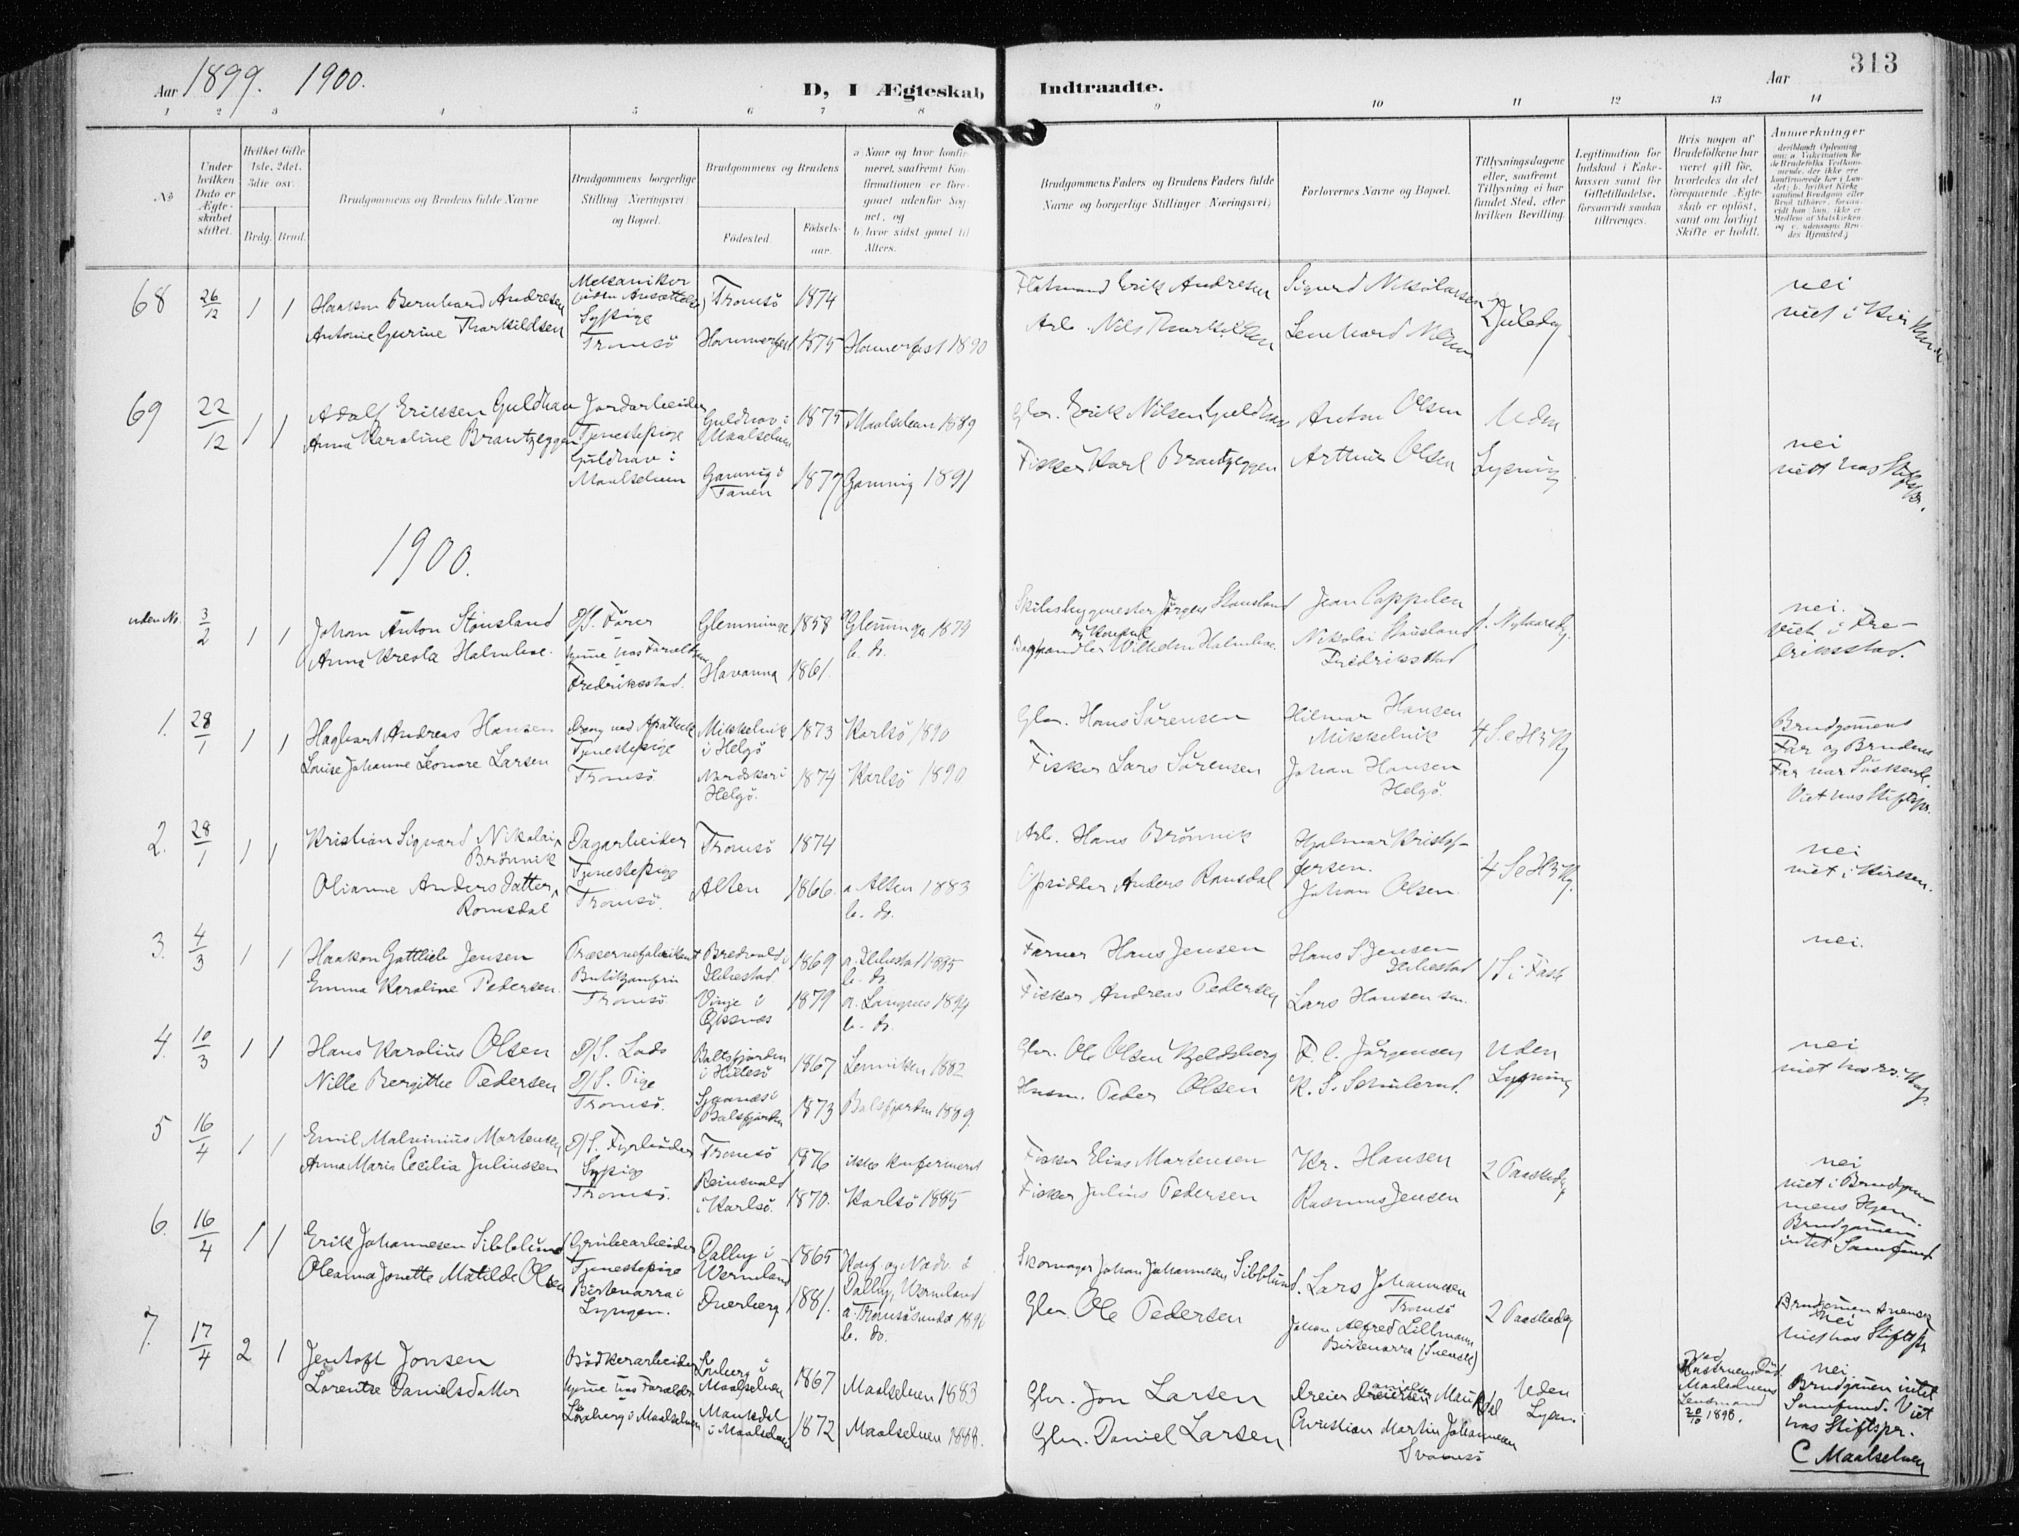 Aar 1899. 1900.
D, I Ægteskab Indtraadte.
Aar
313
1 2 3 4 5 6 7 8 9 10 11 12 13 14
No
Under hvilken Dato er Ægteskabet stiftet.
Hvilket Gifte 1ste, 2det. 3die osv.
Brdg. Brud.
Brudgommens og Brudens fulde Navne
Brudgommens borgerlige Stilling Næringsvei og Bopæl.
Brudgommens og Brudens
Fødested.
Fødselsaar.
a Naar og hvor konfirmeret, saafremt Konfirmationen er foregaaet udenfor Sognet, og
b. hvor sidst gaaet til Alters.
Brudgommens Faders og Brudens Faders fulde Navne og borgerlige Stillinger Næringsvei)
Forlovernes Navne og Bopæl.
Tillysningsdagene eller, saafremt Tillysning ei har fundet Sted, efter hvilken Bevilling.
Legitimation for Indskud i Enkekassen samt for Giftetilladelse, forsaavidt saadan tiltrænges.
Hvis nogen af Brudefolkene har været gift før, hvorledes da det foregaaende Ægteskab er opløst, samt om lovligt Skifte er holdt.
Anmerkninger
68 26/12 1 1 Haakon Bernhard Andresen
Antonie Gurine Tharkildsen
Mekaniker
Sypige
Tromsø
Tromsø 1874
Hammerfest 1875 Hammerfest 1890
Flatmand Erik Andresen
Arb. Nils Tharkildsen
Sigurd Nikolaisen
Lenhard
2 Juledag
nei
viet i Kirken
69 22/12 1 1 Adolf Erikssen Guldhav
Anna Karoline Brantzeggen
Jordarbeider
Tjenestepige
Guldhav i
Maalselven
Guldhav i Maalselven 1875 Maalselven 1889
Gamvig i Tanen 1877 Gamvig 1891
Gbr. Erik Nilsen Guldhav
Fisker Karl Brantzeggen
Anton Olsen
Arthur Olsen
Uden
Lysning
nei
viet hos Stiftspr.
1900.
uden No. 3/2 1 1 Johan Anton Stausland
Anna Kreola Halmhoe.
D/S. Fører
hjme hos Forældrene
Fredriksstad.
Glemminge 1858 Glemminge 1879
b. do.
Havanna 1861.
Skibsbygmester Jørgen Stausland
Wilhelm Halmhoe.
Jean Cappelen
Nikolai Stausland
Fredriksstad
1. Nytaarsdg.
nei.
Viet i Fredriksstad.
1. 28/1 1 1 Hagbart Andreas Hansen
Louise Johanne Leonore Larsen
Tjenestepige
Tromsø
Mikkelvik i Helgø 1873 Karlsø 1890
Nordskar i Helgø. 1874 Karlsø 1890
Gbr. Hans Sørensen
Fisker Lars Sørensen
Hilmar Hansen
Mikkelvik
Johan Hansen
Helgø.
4 S. e H3Kg
Brudgommens
Far og Brudens
Far var Søskende.
Viet hos Stiftspr.
2. 28/1 1 1 Kristian Sigvard Nikolai
Brønvik
Olianne Andersdatter
Romsdal
Dagarbeider
Tjenestepige
Tromsø.
Tromsø 1874
Alten 1866. a. Alten 1883
b. do.
Arb. Hans Brønvik
Opsidder Anders Romsdal
Hjalmar Kristoffersen.
Johan Olsen.
4 S e H3Kg.
nei
viet i Kirken.
3. 4/3 1 1 Haakon Gottlieb Jensen
Emma Karoline Pedersen.
Butikjomfru
Tromsø.
1869
b. do
Vinje i Øksnæs 1879 a. Langnes 1894
b. do.
Hans Jensen
Fisker Andreas Pedersen
Hans S. Jensen
Lars Hansen sen.
1 S i Faste
nei.
4. 10/3 1 1 Hans Karolius Olsen
Nille Bergithe Pedersen
D/S. Lods
D/S. Pige
Tromsø.
Balsfjorden i Hillesø 1867 Lenviken 1882
Balsfjorden 1873 Balsfjorden 1889.
Gbr. Ole Olsen Kjeldsberg
Husm. Peder Olsen
F. C. Jørgensen
Uden
Lysning
nei
viet hos
5 16/4 1 1 Emil Malvinius Martensen
Anna Maria Cecilia Juliussen
D/S. Fyrbøder
Sypige
Tromsø.
Tromsø 1876 ikke konfirmeret
Reinsvold i Karlsø. 1870. Karlsø 1885
Fisker Elias Martensen
Fisker Julius Pedersen
Kr. Hansen
Rasmus Jensen
2 Paaskedg
nei
viet i Brudgommens Hjem.
Brudgommen
intet Samfund.
6. 16/4 1 1 Erik Johannesen Sibblund
Oleanna Jonette Matilde Olsen
Grubearbeider
Tjenestepige
Birtenarra i
Lyngen.
Dalby i Wermland 1865 Konf. og Nadv. i
Dalby, Wermland
1881. a. Tromsøsundet 1896
b. do.
Skomager Johan Johannesen Sibblund.
Gbr. Ole Pedersen
Lars Johannesen
Tromsø
Johan Alfred Lillmann
Birtenarra (Svensk)
2 Paaskedg
Brudgommen svensk
nei
viet hos Stiftspr
7. 17/4 2 1 Jentoft Jonsen
Lorentze Danielsdatter
Bødkerarbeider
hjme hos Forældre
Løvberg i Maalselven
Løvberg i Maalselven 1867 Maalselven 1883
Maukdal i Maalselven 1872 Maalselven 1888.
Gbr. Jon Larsen
Gbr. Daniel Larsen
Christian Martin Johannesen
Uden
Lysn.
Ved
Hustruens Død.
Maalselvens
Lensmand
20/10 1896.
nei
Brudgommen intet
Samfund. Viet
hos Stiftspr.
C Maalselven